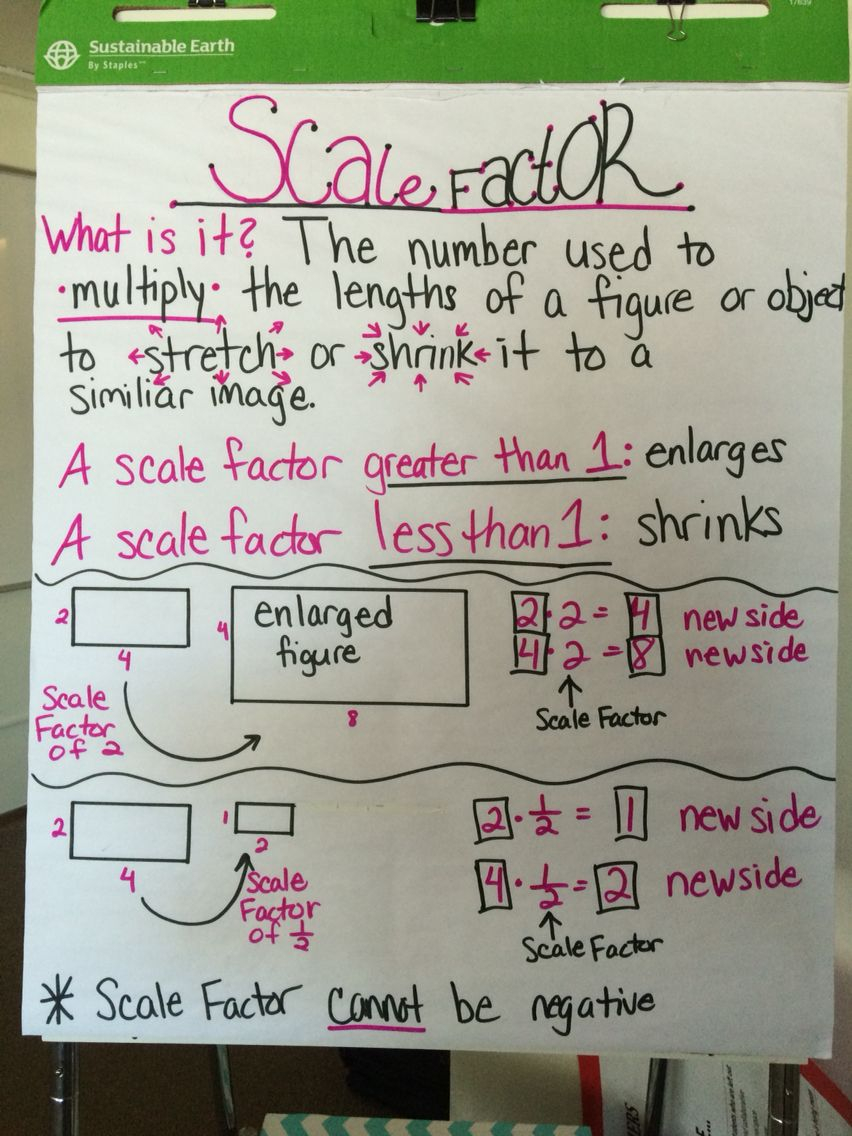 17639
Sustainable Earth
By Staples™
Scale Factor
What is it? The number used to
·multiply· the lengths of a figure or object
to stretch or shrink it to a
similiar image.
A scale factor greater than 1: enlarges
A scale factor less than 1: shrinks
2
4
Scale
Factor
of 2
4
enlarged
figure
8
2 · 2 = 4 new side
4 · 2 = 8 new side
Scale Factor
2
4
1
2
Scale
Factor
of 1/2
2 · 1/2 = 1 new side
4 · 1/2 = 2 new side
Scale Factor
* Scale Factor cannot be negative